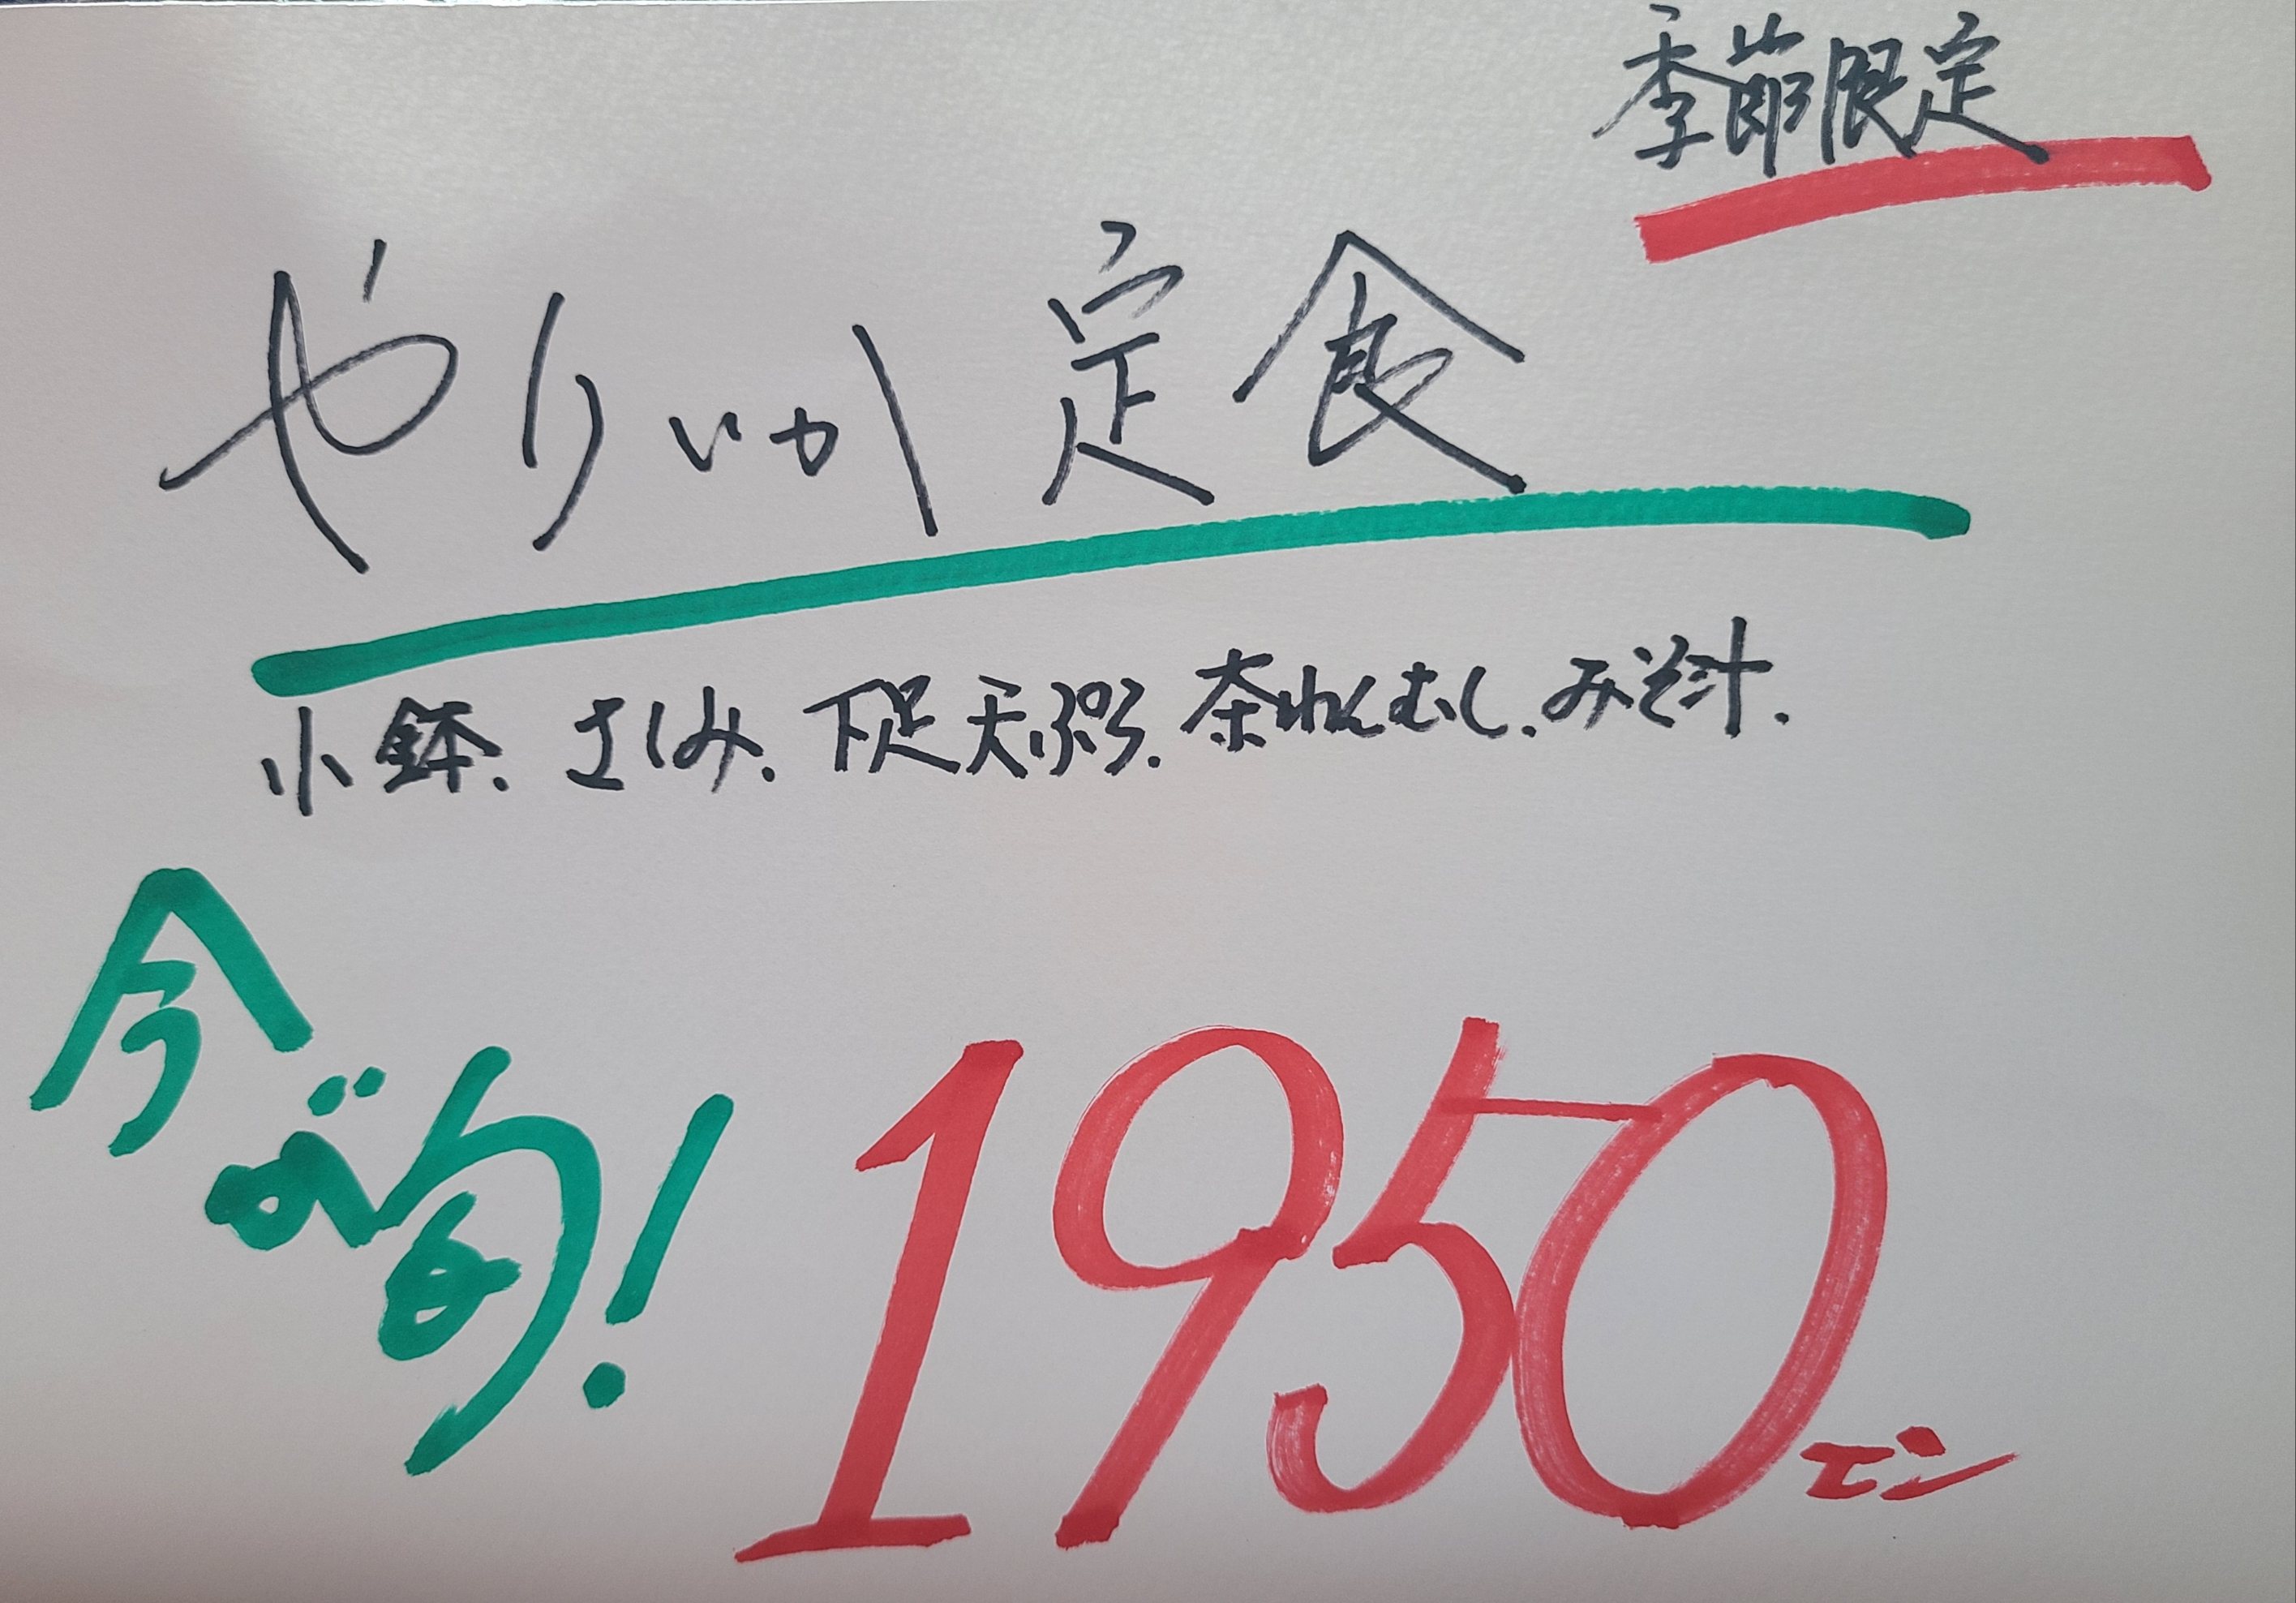 季節限定
やりいか定食
小鉢、さしみ、下足天ぷら、茶わんむし、みそ汁、
今が旬!
1950エン